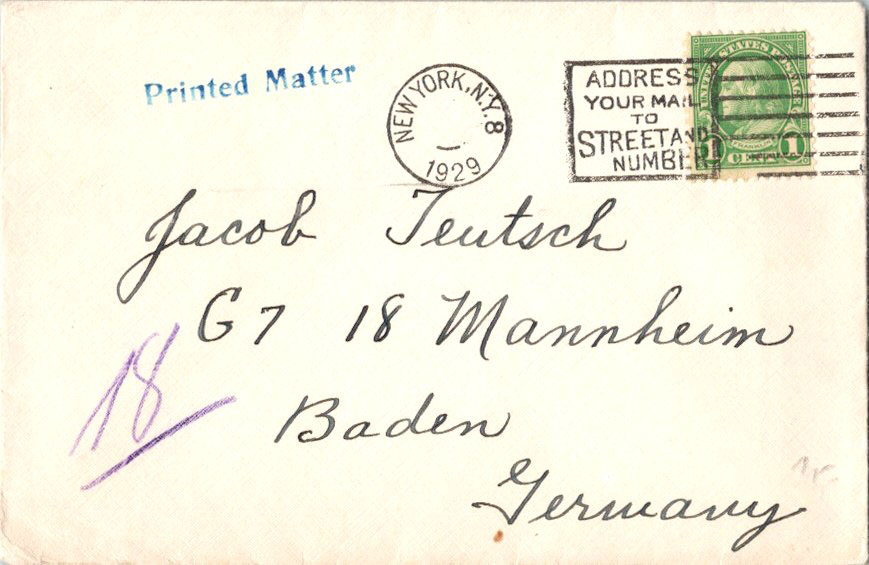 Printed Matter
NEW YORK, N.Y. 8
1929
ADDRESS
YOUR MAIL
TO
STREET AND
NUMBER
UNITED STATES POSTAGE
FRANKLIN
1 CENT 1
Jacob Teutsch
G7 18 Mannheim
Baden
Germany
18